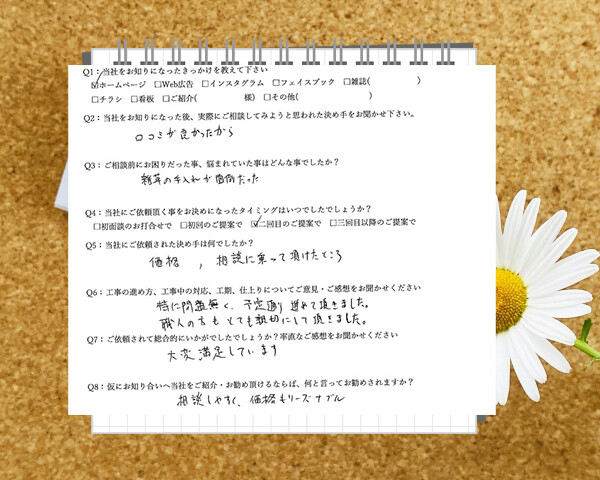 Q1：当社をお知りになったきっかけを教えて下さい
☑ホームページ □Web広告 □インスタグラム □フェイスブック □雑誌( )
□チラシ □看板 □ご紹介( 様) □その他( )
Q2：当社をお知りになった後、実際にご相談してみようと思われた決め手をお聞かせ下さい。
口コミが良かったから
Q3：ご相談前にお困りだった事、悩まれていた事はどんな事でしたか？
雑草の手入れが面倒だった
Q4：当社にご依頼頂く事をお決めになったタイミングはいつでしたでしょうか？
□初面談のお打合せで □初回のご提案で ☑二回目のご提案で □三回目以降のご提案で
Q5：当社にご依頼された決め手は何でしたか？
価格 , 相談に乗って頂けたところ
Q6：工事の進め方、工事中の対応、工期、仕上りについてご意見・ご感想をお聞かせください
特に問題無く、予定通り進めて頂きました。
職人の方もとても親切にして頂きました。
Q7：ご依頼されて総合的にいかがでしたでしょうか？率直なご感想をお聞かせください
大変満足しています
Q8：仮にお知り合いへ当社をご紹介・お勧め頂けるならば、何と言ってお勧めされますか？
相談しやすく、価格もリーズナブル